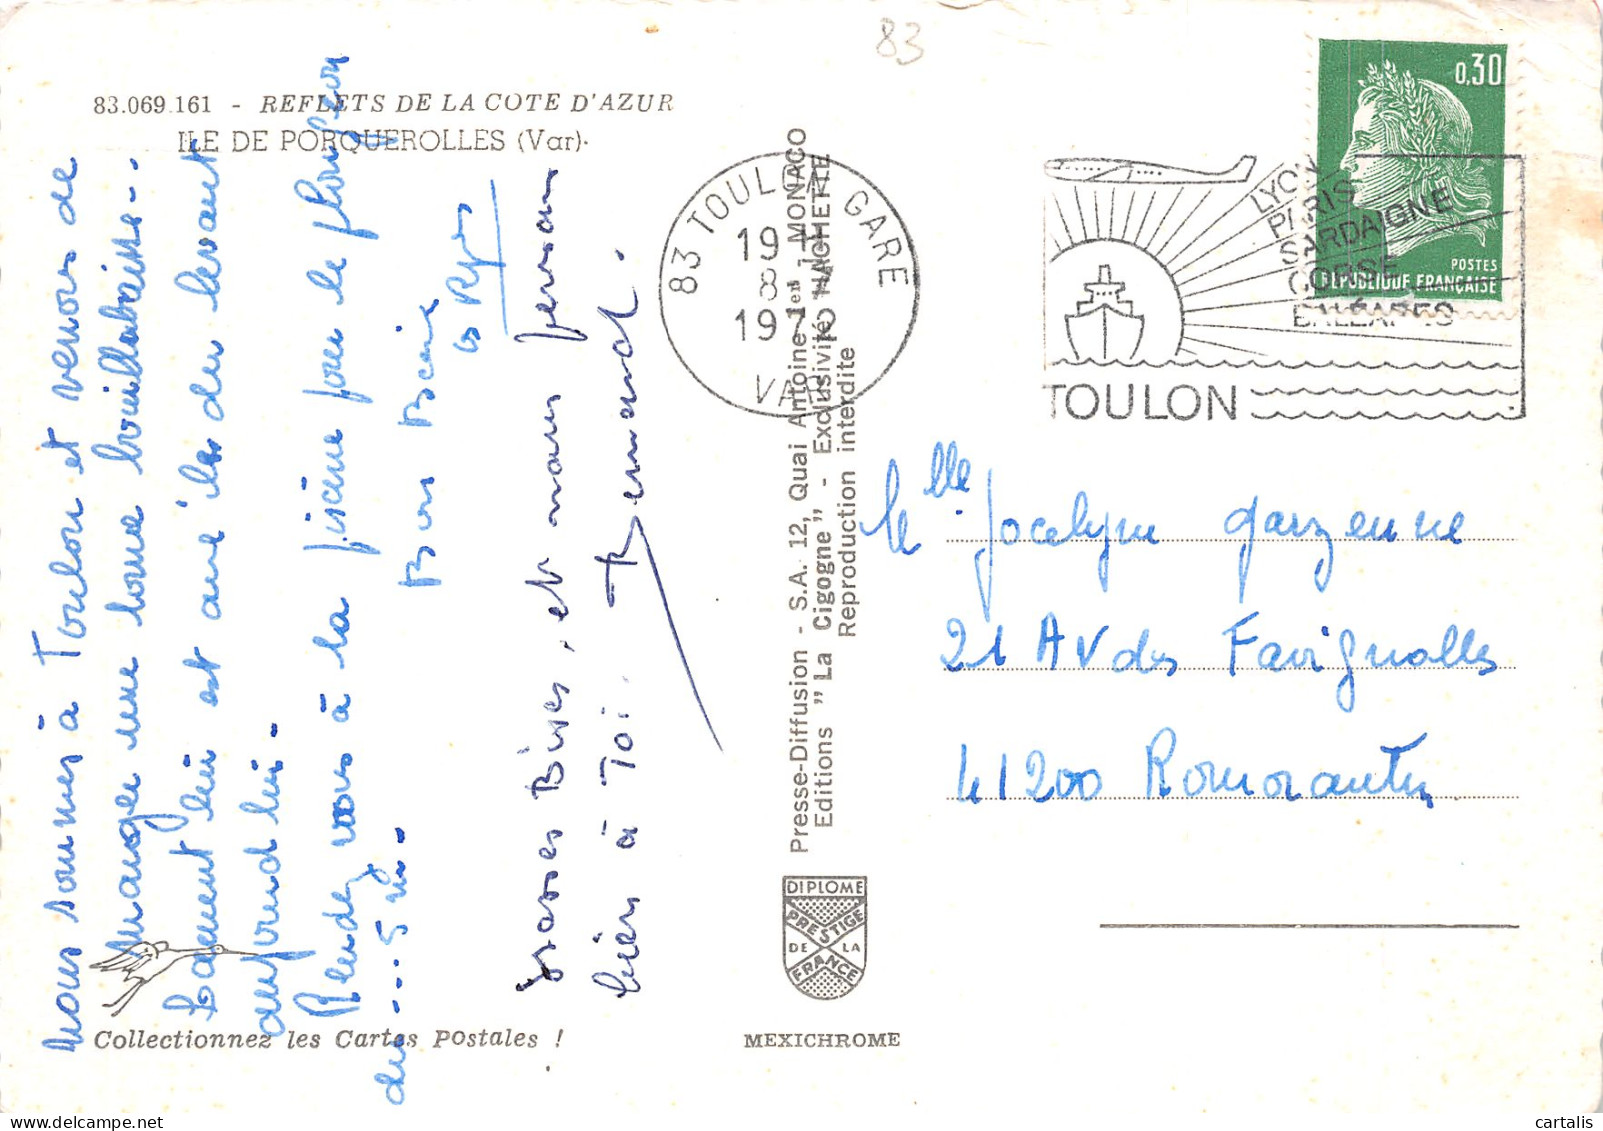 83
83.069.161 - REFLETS DE LA COTE D'AZUR
ILE DE PORQUEROLLES (Var)
Nous sommes à Toulon et venons de
manger une bonne bouillabaisse...
Laurent lui est à l'île du levant
aujourd'hui.
Rendez vous à la piscine pour le plongeon
des ... 5 m.
Bon Baiser
Grosses Bises, et nous pensons
bien à Toi. Bernard.
Collectionnez les Cartes Postales !
Presse-Diffusion - S.A. 12, Quai Antoine 1er MONACO
Editions "La Cigogne" - Exclusivité HACHETTE
Reproduction interdite
DIPLOME
PRESTIGE
DE LA
FRANCE
MEXICHROME
83 TOULON GARE
19 H
8
VAR
0,30
POSTES
REPUBLIQUE FRANÇAISE
LYON
PARIS
SARDAIGNE
CORSE
BALEARES
TOULON
Melle Jocelyne Garzenne
21 AV des Favignolles
41200 Romorantin
cartalis